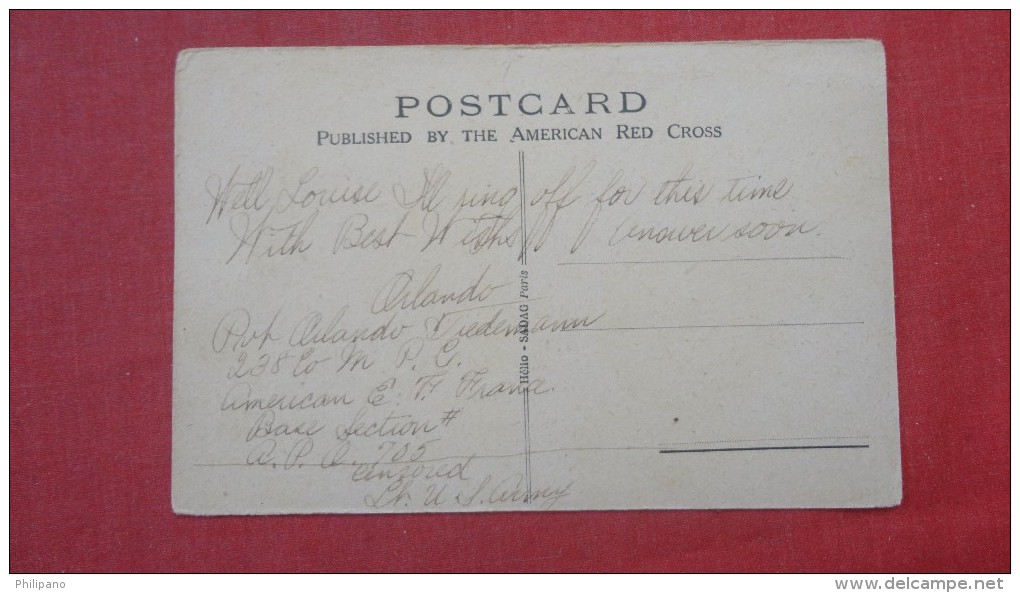 POSTCARD
PUBLISHED BY THE AMERICAN RED CROSS
Well Louise I'll ring off for this time
With Best Wishs answer soon.
Orlando
Pvt Orlando Tiedemann
238 Co M P. C.
American E. F. France.
Base Section #
A. P. O. 705
Censored
Lt. U. S. Army
Hélio - SADAG Paris
Philipano
www.delcampe.net